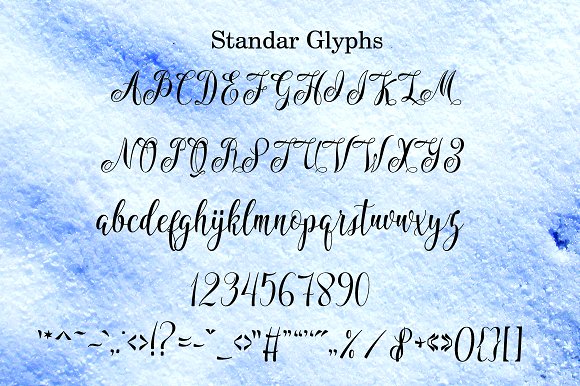 Standar Glyphs
ABCDEFGHIJKLM
NOPQRSTUVWXYZ
abcdefghijklmnopqrstuvwxyz
1234567890
'*^~-`,.·<>!?=-˘_<>"#"“‘‚„%/&+«»(){}[]